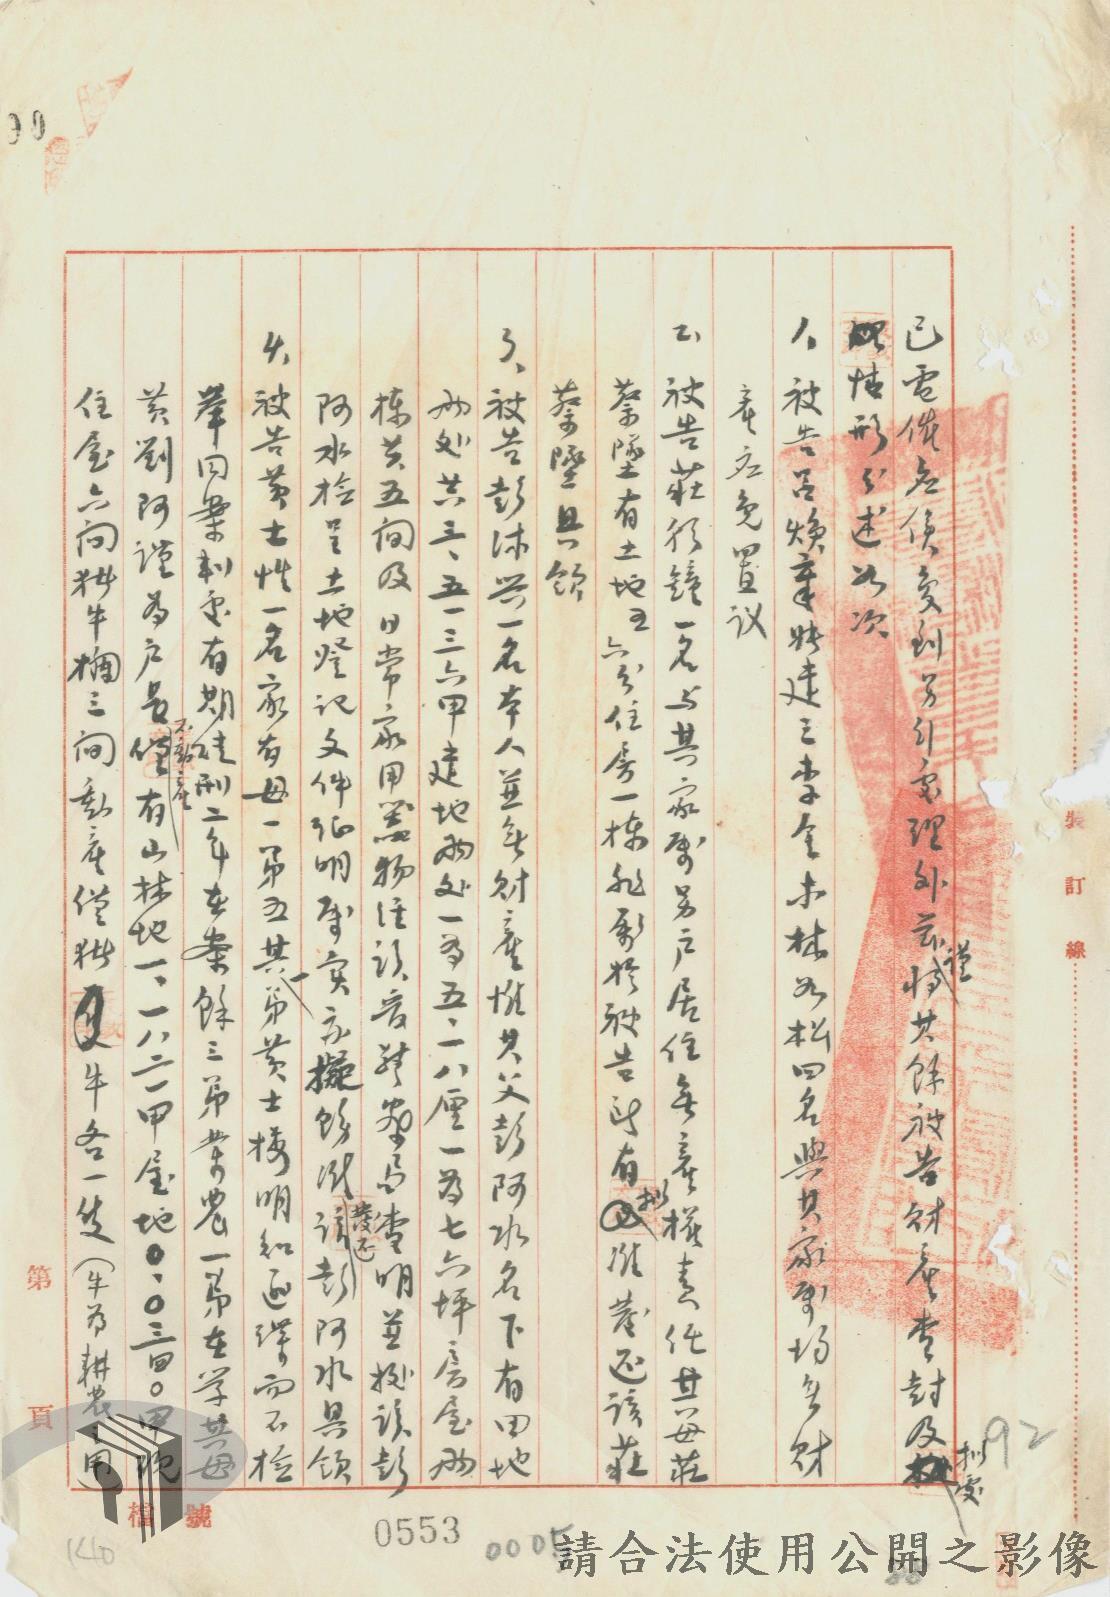 已電催應俟查到另引處理外茲謹將其餘被告財產查封及擬處
情形分述如次
1、被告呂煥章、建三、李金木、林如松四名與其家屬均無財
產應免置议
2、被告莊  鐘一名与其家屬另戶居住無產權責任其母莊
蔡墜有土地五六分住房一棟非屬於被告所有擬准發还該莊
蔡墜具領
3、被告彭沐兴一名本人並無財產惟其父彭阿水名下有田地
兩处共三、五一三六甲建地兩处一為五、一八厘一為七六坪房屋兩
棟共五间及日常家用器物經該 警局查明並據該彭
阿水檢呈土地登记文件证明屬实家擬飭  發还該彭阿水具領
4、被告黄士性一名家有母一弟五其一弟黄士梅明知逆諜而不检
舉同案判处有期徒刑二年在案餘三弟業農一弟在学其母
黄劉阿謹為戶長不動產僅有山林地一、一八二一甲屋地0、0三四0甲現
住屋六间耕牛欄三间動產僅耕 牛各一隻（牛為耕農之用
裝 訂 線
第 頁
檔 號
0553
0005
92
90
140
請合法使用公開之影像